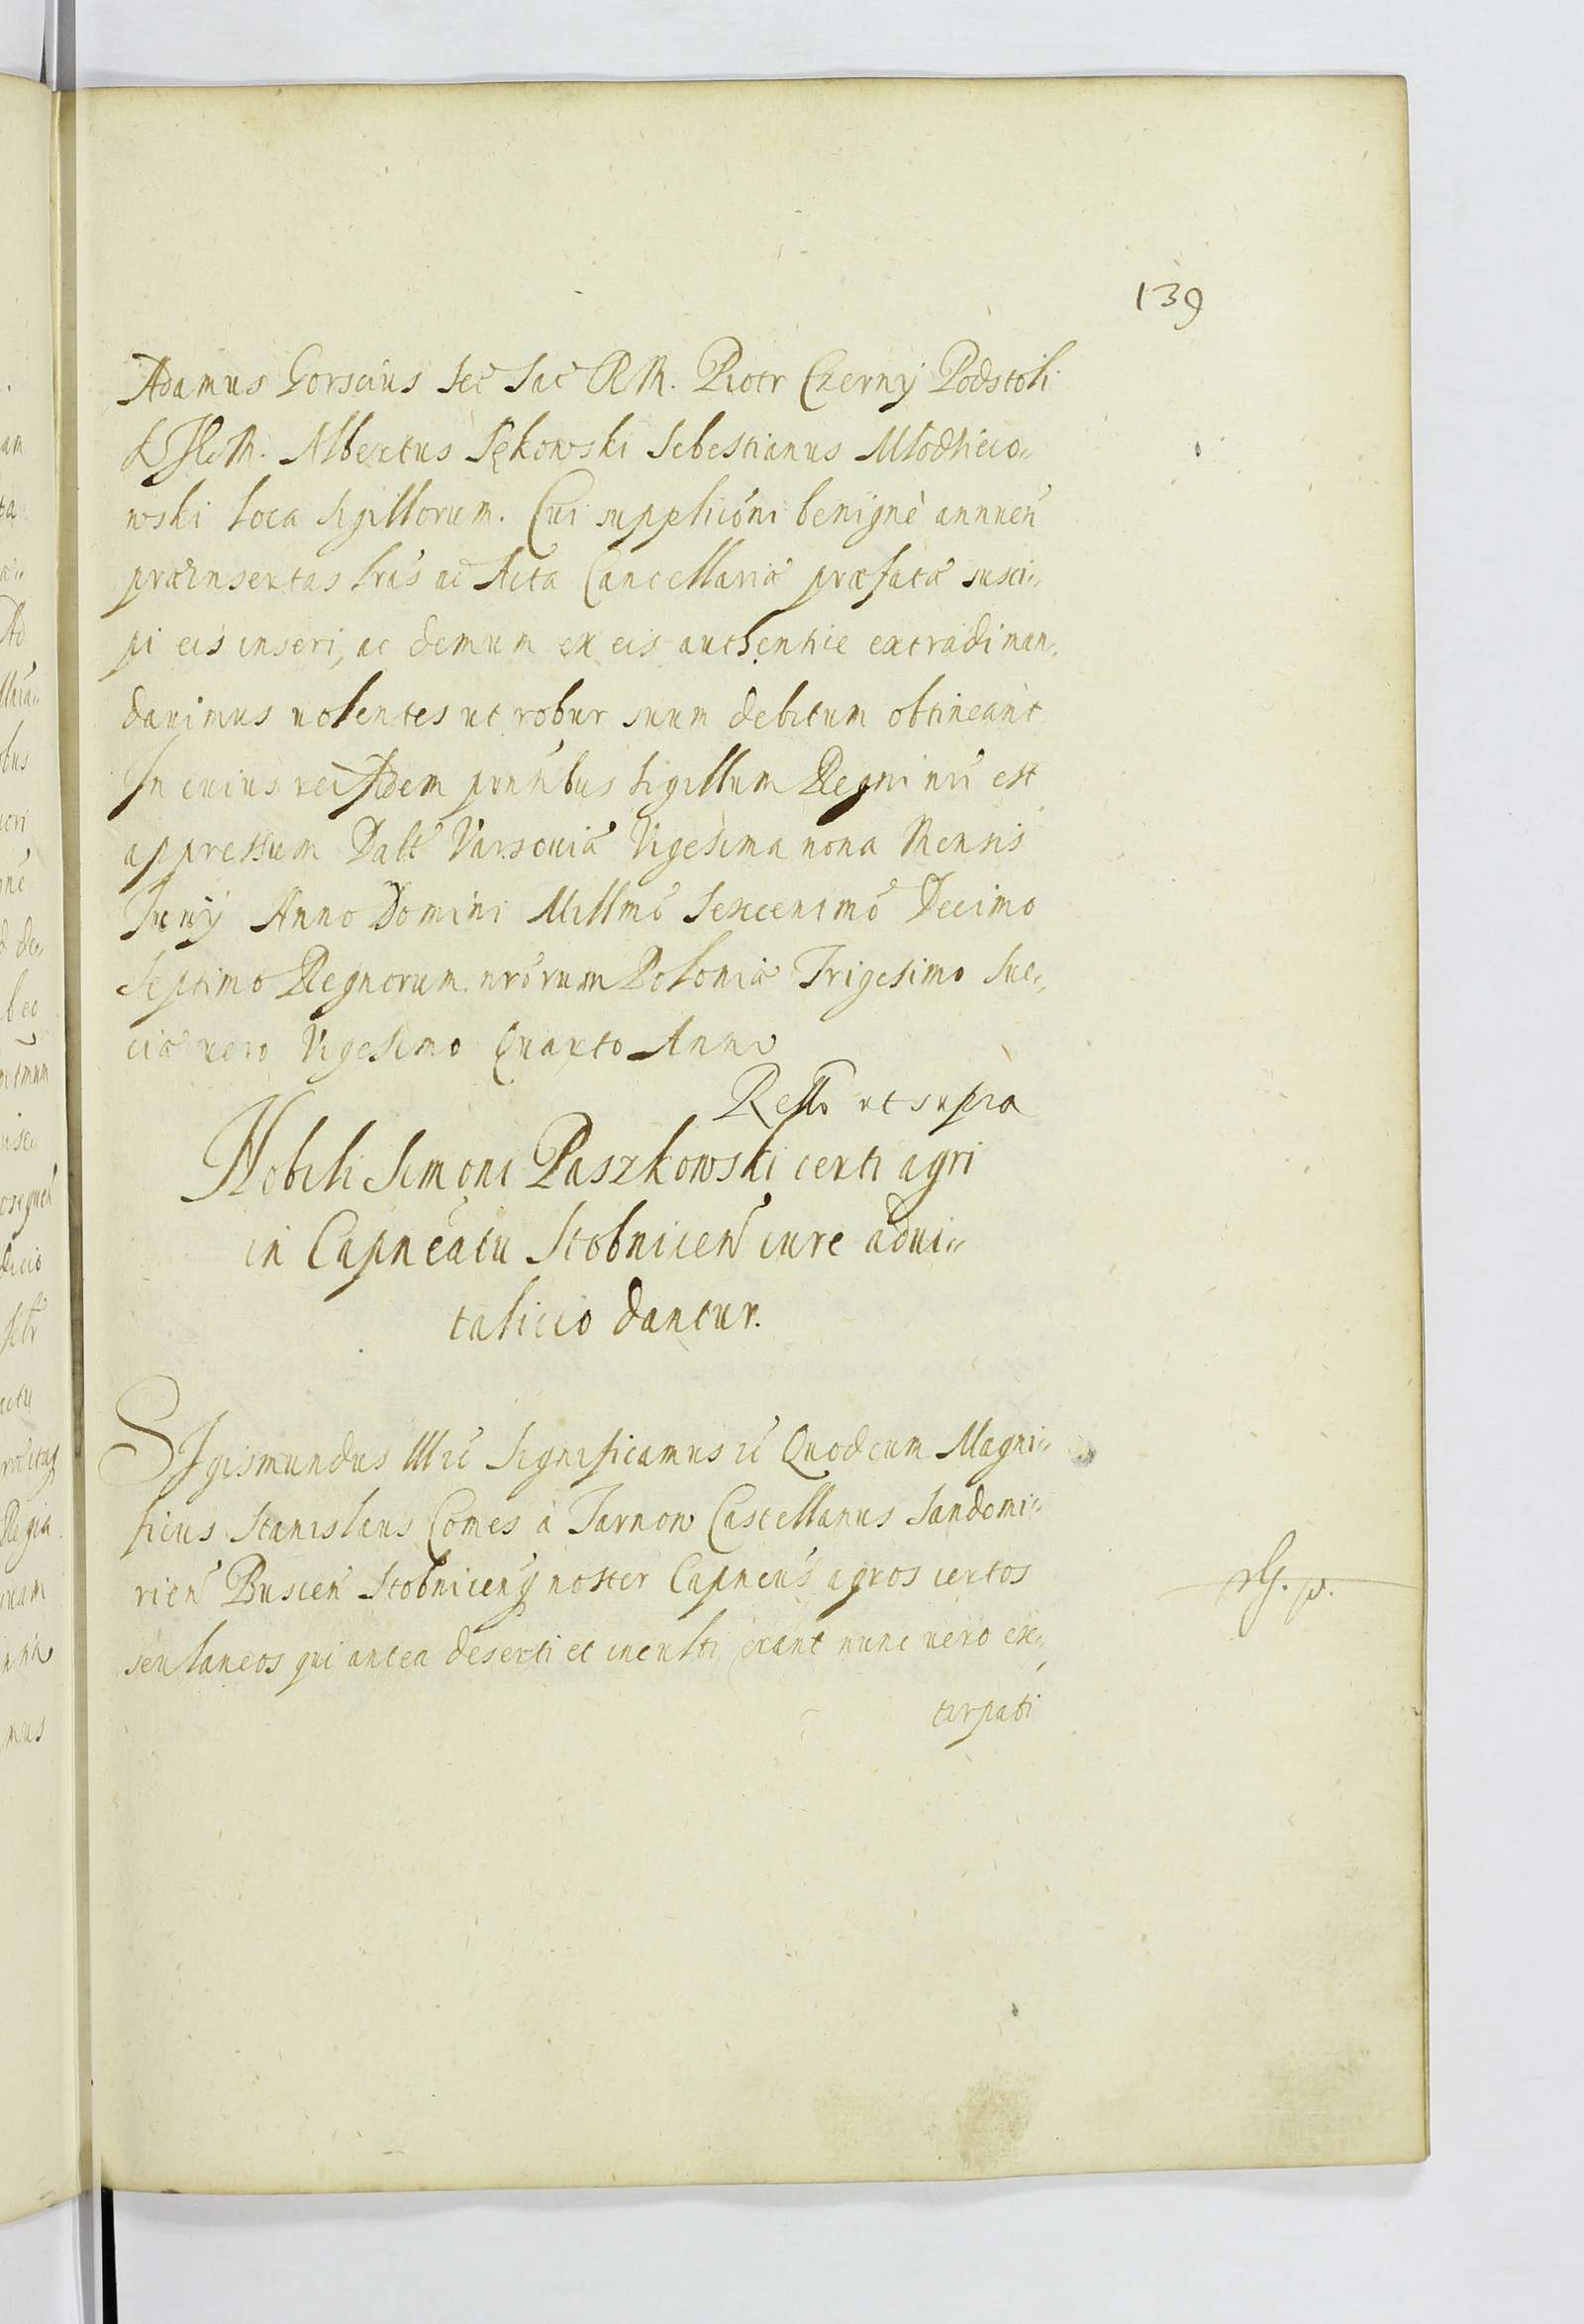 139
Adamus Gorscius Sec Sac R M. Piotr Czerny Podstoli
K J K M. Albertus Sękowski Sebestianus Młodzieio„
wski loca Sigillorum. Cui supplicōni benignè annuen̄
præinsertas lr̄as ad Acta Cancellariæ præfatæ susci„
pi eis inseri, ac demum ex eis authentice extradi man„
dauimus uolentes ut robur suum debitum obtineant
In cuius rei fidem pr̄ntibus Sigillum Regni nr̄i est
appressum Datt Varsouiæ Vigesima nona Mensis
Junij Anno Domini Millmō Sexcenṁo Decimo
Septimo Regnorum nr̄orum Poloniæ Trigesimo Sue„
ciæ uero Vigesimo Quarto Anno
Resso ut supra
Nobili Simoni Paszkowski certi agri
in Capneātu Stobnicen̄ iure adui„
talicio dantur.
SIgismundus IIIūs Significamus &c Quod cum Magni„
ficus Stanislaus Comes à Tarnow Castellanus Sandomi„
rien̄ Buscen̄ Stobnicenq noster Capneūs agros certos
seu laneos qui antea deserti et inculti erant nunc uero ex„
tirpati